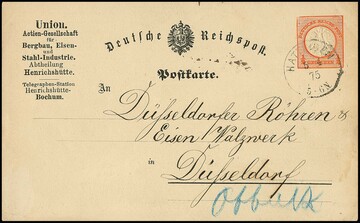 Union.
Actien-Gesellschaft
für
Bergbau, Eisen-
und
Stahl-Industrie.
Abtheilung
Henrichshütte.
Telegraphen-Station
Henrichshütte-
Bochum.
Deutsche Reichspost.
Postkarte.
An
Düsseldorfer Röhren &
Eisen Walzwerk
in
Düsseldorf
75
5-6N